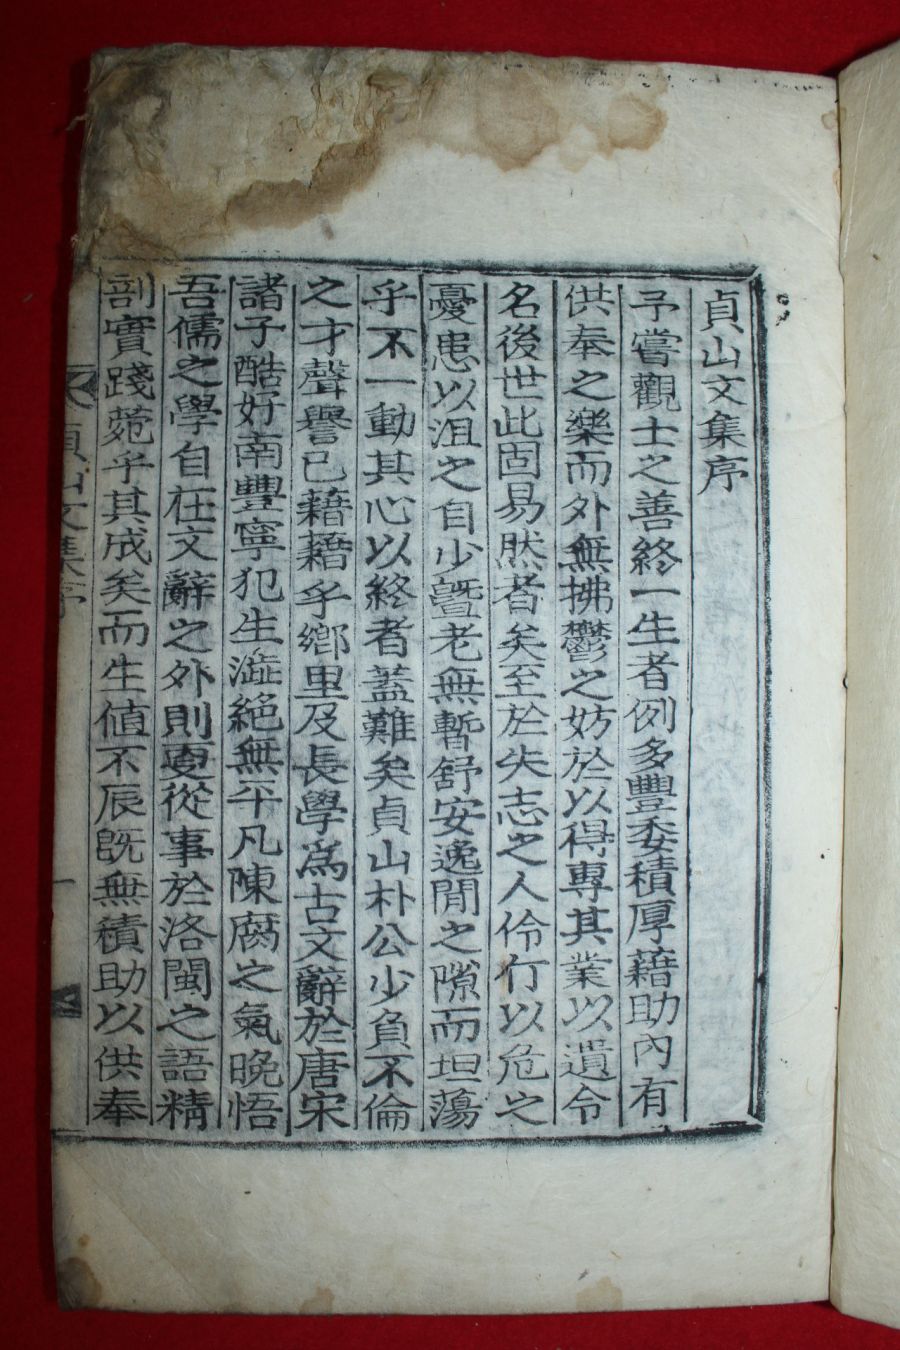 貞山文集序
予嘗觀士之善終一生者例多豐委積厚藉助內有
供奉之樂而外無拂鬱之妨於以得專其業以遺令
名後世此固易然者矣至於失志之人伶仃以危之
憂患以沮之自少曁老無暫舒安逸閒之隙而坦蕩
乎不一動其心以終者蓋難矣貞山朴公少負不倫
之才聲譽已藉藉乎鄉里及長學爲古文辭於唐宋
諸子酷好南豐寧犯生澁絕無平凡陳腐之氣晚悟
吾儒之學自在文辭之外則更從事於洛閩之語精
剖實踐菀乎其成矣而生値不辰旣無積助以供奉
貞山文集序
一